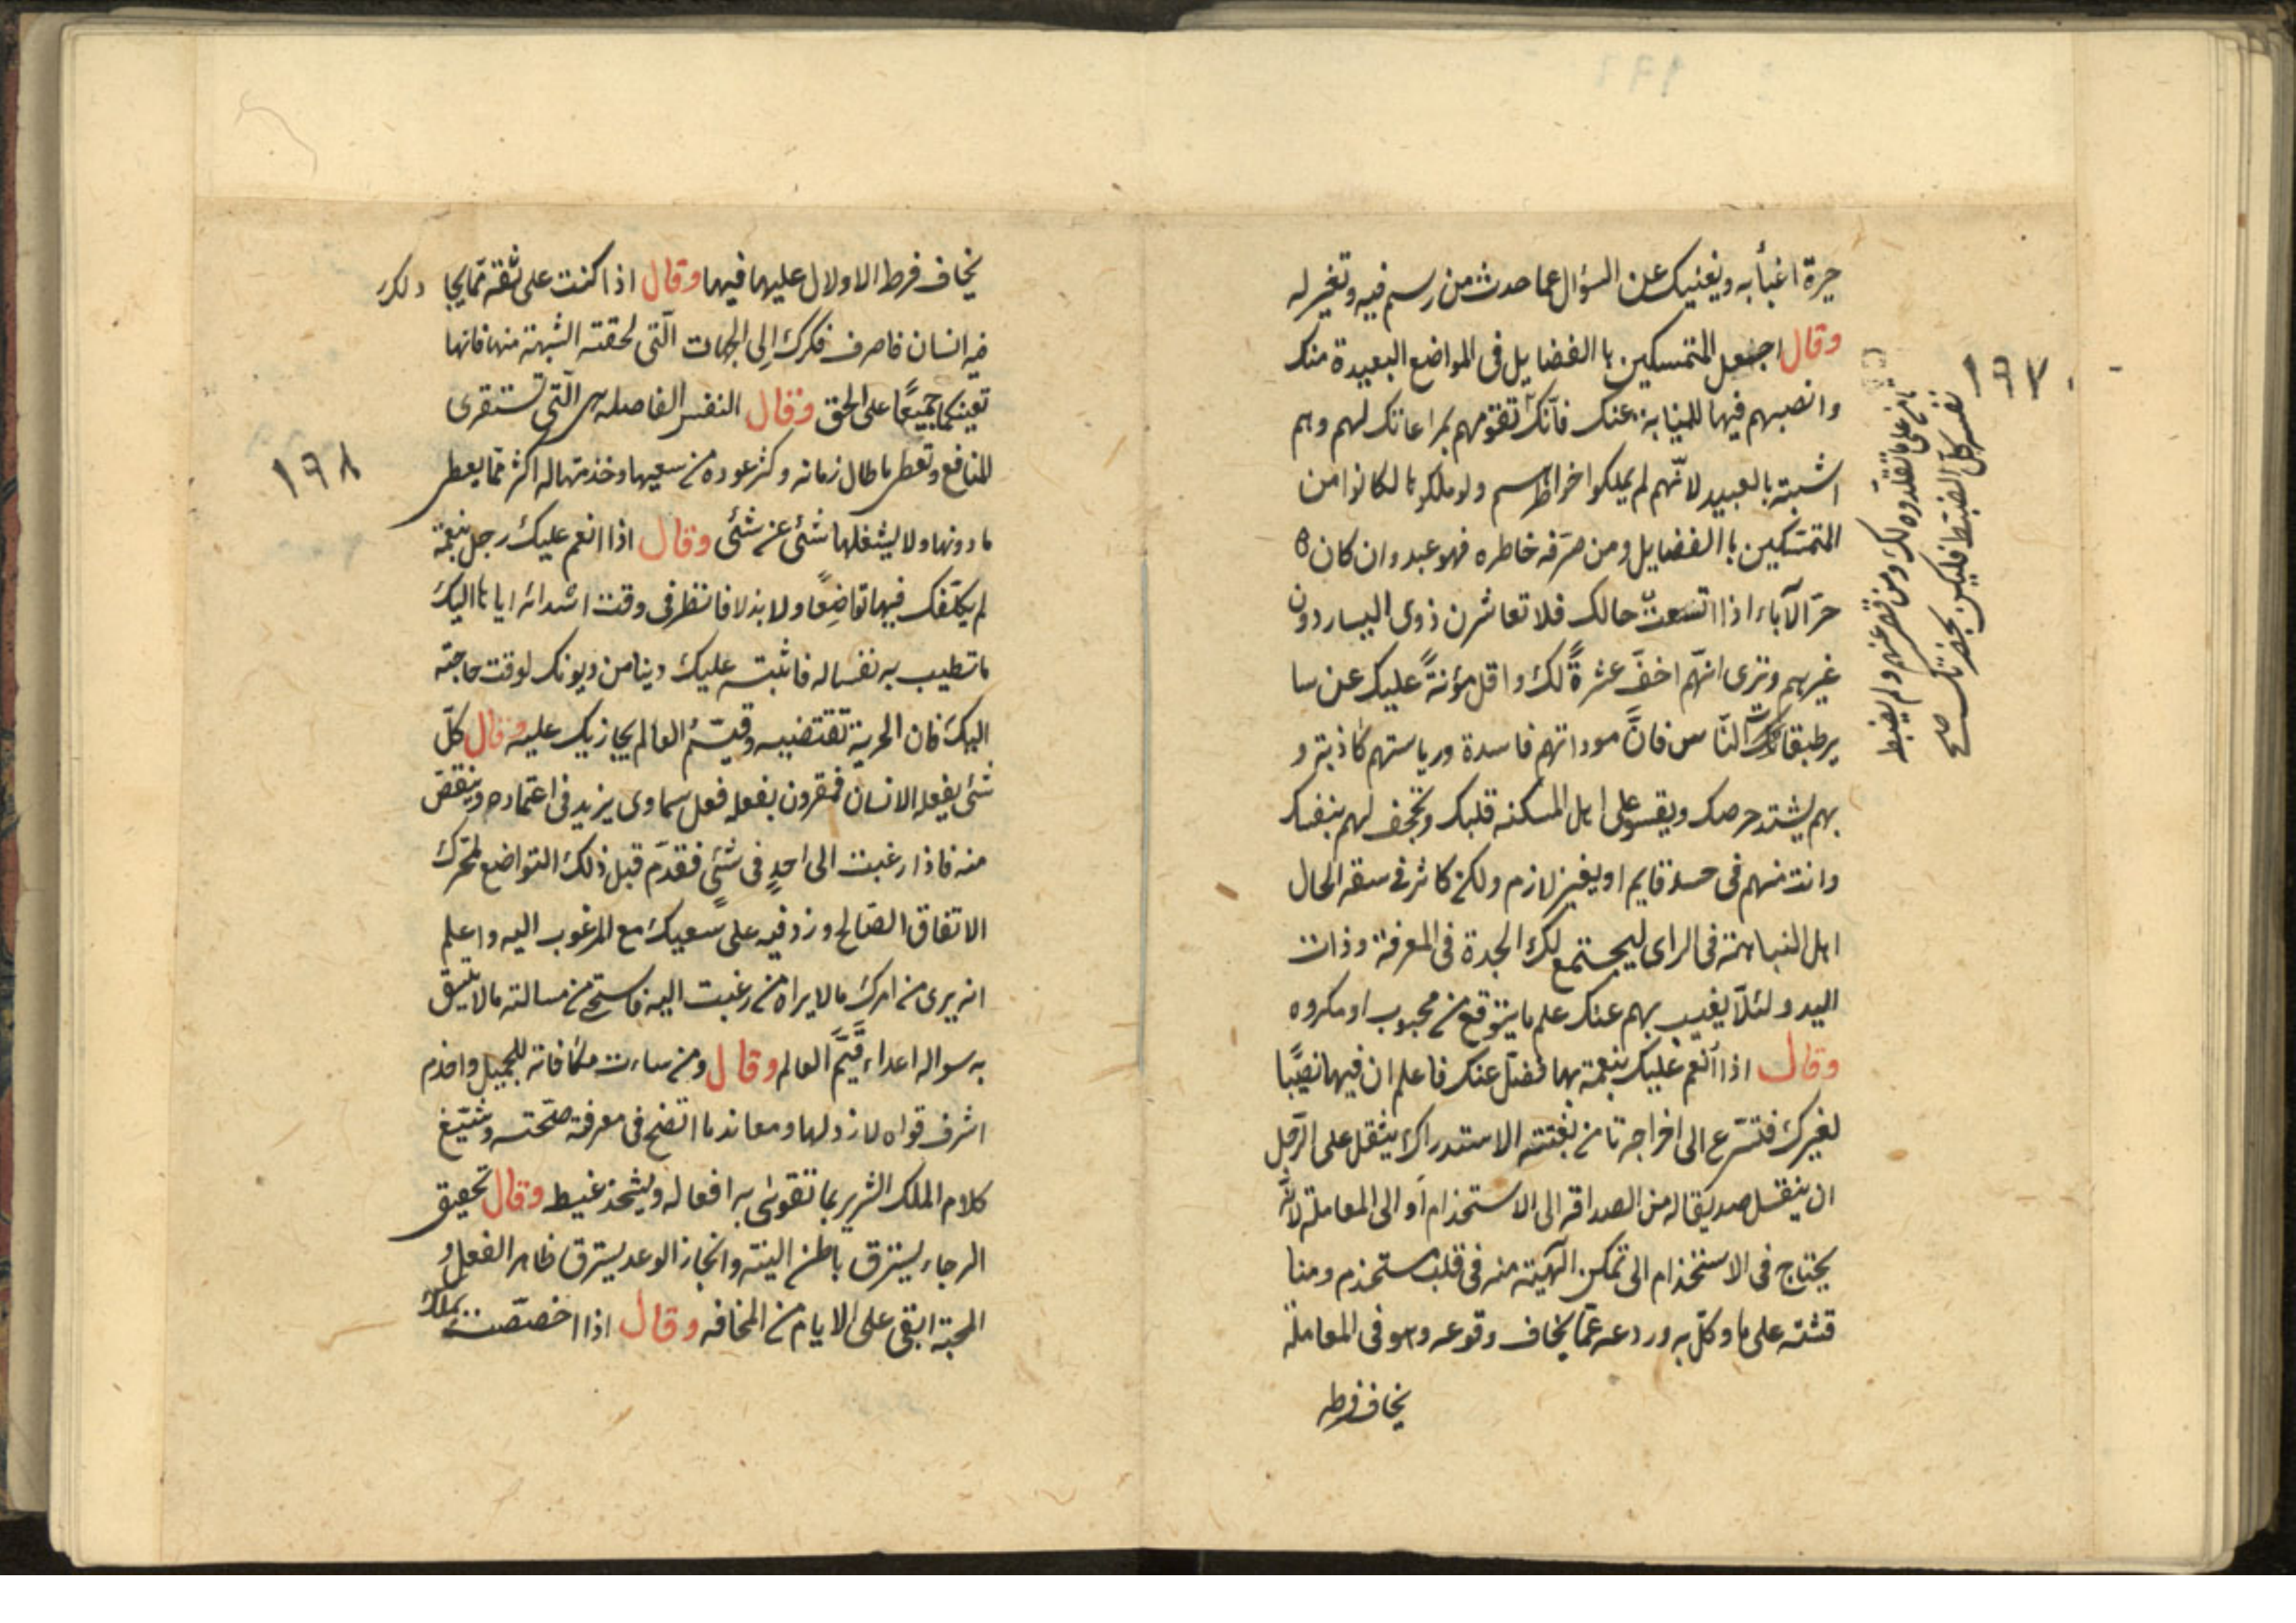 حيرة اغبأ به ويغنيك عن السؤال عما حدث من رسم فيه وتغير له
وقال اجعل المتمسكين با الفضايل فى المواضع البعيدة منك
وانصبهم فيها للنيابة عنك فآنك تقومهم بمراعاتك لهم وهم
اشبته بالعبيد لانّهم لم يملكوا خواطرهم ولو ملكوها لكانوا من
المتمسّكين با الفضايل ومن صرّفه خاطره فهو عبد وان كان
حرّ الآباء اذا اتسعت حالك فلا تعاشرن ذوى اليسار دون
غيرهم وترى انهّم اخفّ عشرةً لك واقل مؤنةً عليك عن سا
ير طبقات النّاس فانَّ موداتهم فاسدة ورياستهم كاذبة و
بهم يشتد حرصك ويقسو على اهل المسكنه قلبك وتجحف لهم بنفسك
وانت منهم فى حسد قايم او يغير لازم ولكن كاثر فى سعة الحال
اهل النباهة فى الراى ليجتمع لك الجدة فى المعرفة وذات
اليد ولئلّا يغيب بهم عنك علم ما يتوقع من محبوب او مكروه
وقال اذا أنعم عليك بنعمة بها فضل عنك فاعلم ان فيها نصيبًا
لغيرك فتسّرع الى اخراجه تامن بغتته الاستدراك يثقل على الرّجل
ان ينقل صديقا له من الصداقه الى الاستخدام أو الى المعاملة لانّه
يحتاج فى الاستخدام الى تمكين الهيبة منه فى قلب مستخدم ومنا
قشته على ما وكّل به وردعه عمّا يخاف وقوعه وهو فى المعاملة
يخاف فرط
١٩٧
ما نح على ما تقلدوه لك ومن قصر عنهم ولم يضبط
نفسه كل الضبط فليكن بحضرتك صح
يخاف فرط الاولال عليهما فيها وقال اذا كنت على ثقة ممّا يجا دلك
فيه انسان فاصرف فكرك إلى الجهات الّتى لحقته الشبهة منها فانها
تعينكما جميعًا على الحق وقال النفس الفاضله هى الّتى تستقرى
المنافع وتعطى ما طال زمانه وكثر عوده من سعيها وخذمتها له اكثر ممّا يعطى
ما دونها ولا يشغلها شئى عن شئى وقال اذا انعم عليك رجل بنعمة
لم يكلّفك فيها تواضعًا ولا بذلا فانظر فى وقت اسدائه اياها اليك
ما تطيب به نفسا له فاثبته عليك دينا من ديونك لوقت حاجته
اليك فان الحرية تقتضيه وقيّم العالم يجازيك عليه وقال كلّ
شئى يفعله الانسان فمقرون بفعله فعل سماوى يزيد فى اعتماده وينقص
منه فاذا رغبت الى احدٍ فى شئىٍ فقدّم قبل ذلك التواضع لمحرّك
الاتفاق الصّالح وزد فيه على سعيك مع المرغوب اليه واعلم
انه يرى من امرك مالا يراه من رغبت اليه فاستحى من مسالته مالا يليق
به سواله اعداء قيَّم العالم وقال ومن ساءت مكافاته للجميل واخذم
اشرف قواه لارذلها ومعاند ما اتضح فى معرفة صحّته ومشيّع
كلام الملك الشرير بما تقوى به افعاله ويشحذ غيظه وقال تحقيق
الرجاء يسترق باطن النيّة وانجاز الوعد يسترق ظاهر الفعل و
المحبة ابقى على الايام من المخافه وقال اذا اختصّصت بملك
١٩٨